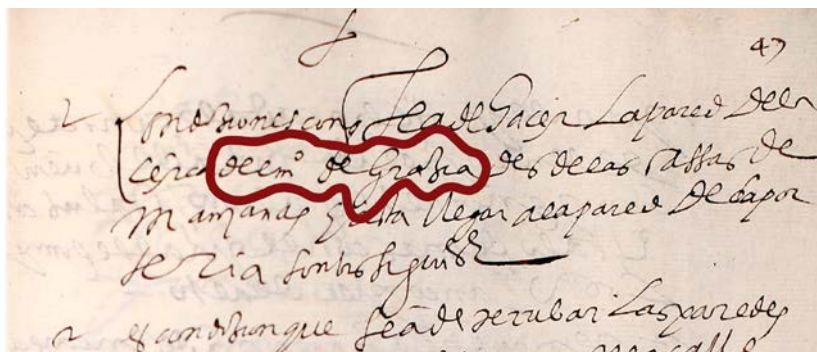 47
Condisiones con q se a de haçer la pared de la
cerca de el m.º de Grasia desde las cassas de
mansanas hasta llegar a la pared de la por
teria son los sigui
es condision que se a de derribar las paredes
calle